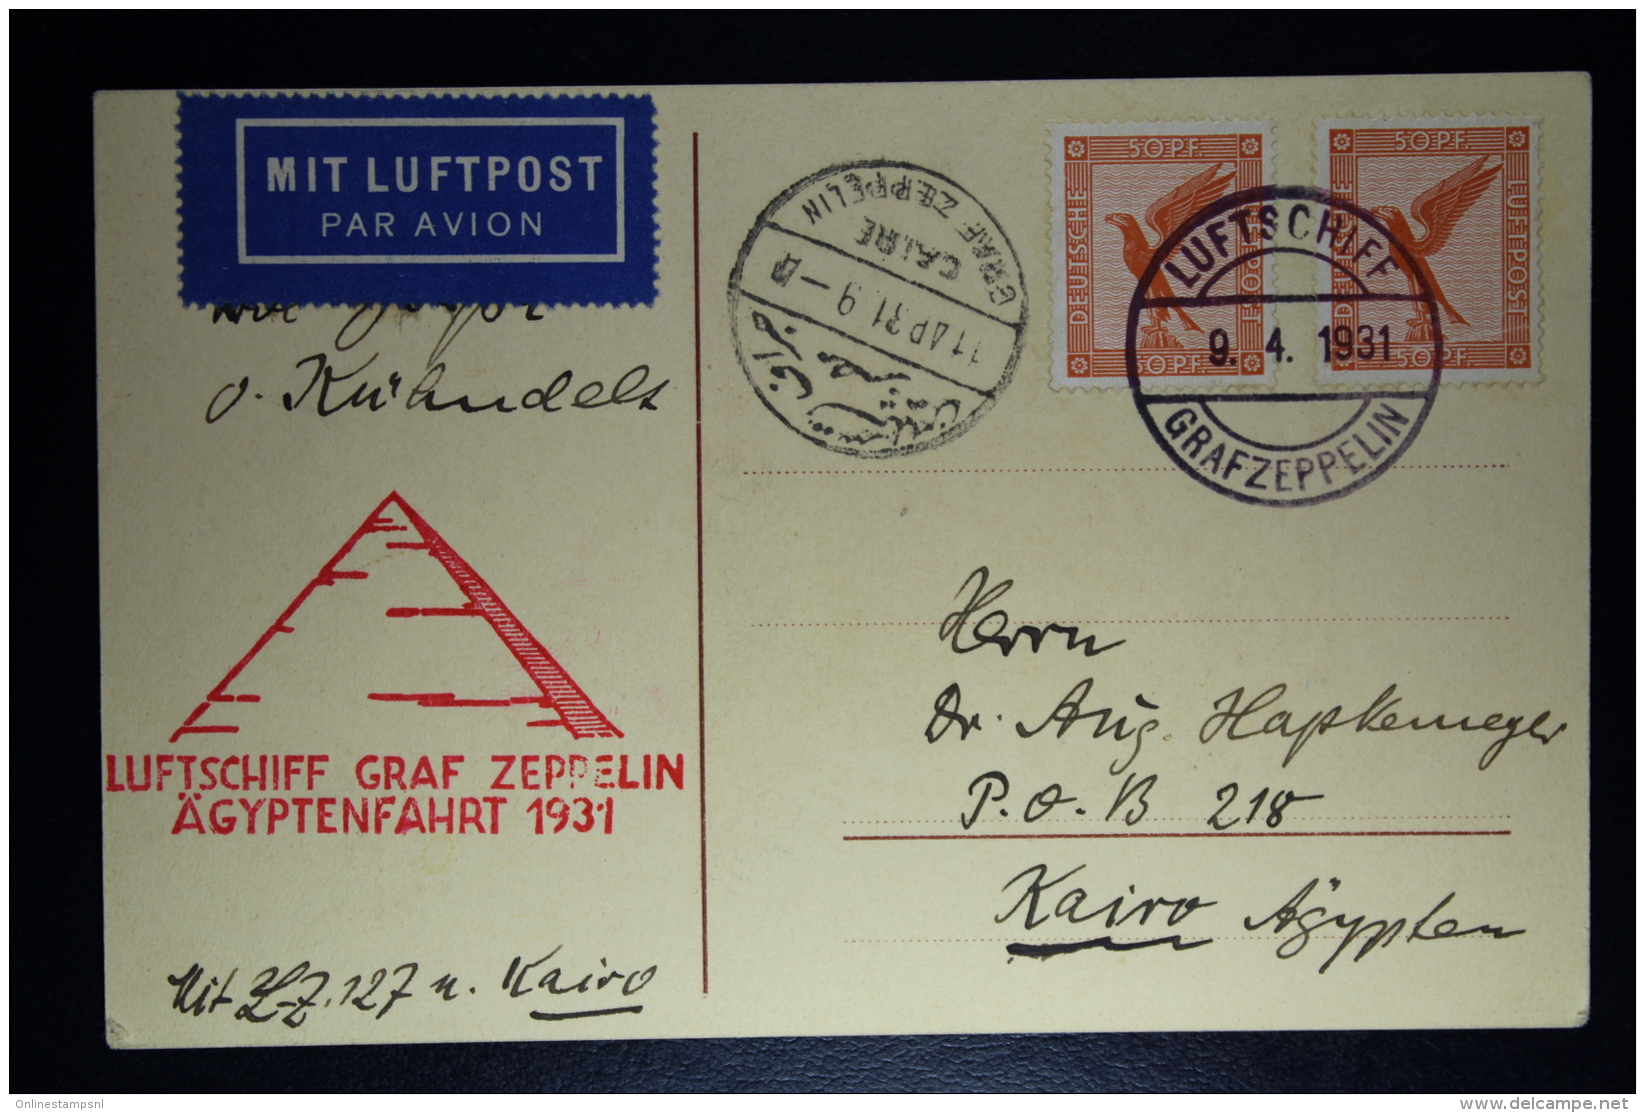 MIT LUFTPOST
PAR AVION
v. Kühndels
LUFTSCHIFF GRAF ZEPPELIN
ÄGYPTENFAHRT 1931
Mit L-Z. 127 n. Kairo
GRAF ZEPPELIN
CAIRE
11 AP 31. 9 -
50 PF.
DEUTSCHE
LUFTPOST
50 PF.
50 PF.
DEUTSCHE
LUFTPOST
50 PF.
LUFTSCHIFF
9. 4. 1931
GRAF ZEPPELIN
Herrn
Dr. Aug. Hapkemeyer
P.O.B 218
Kairo Ägypten
Onlinestampsnl
delcampe.net